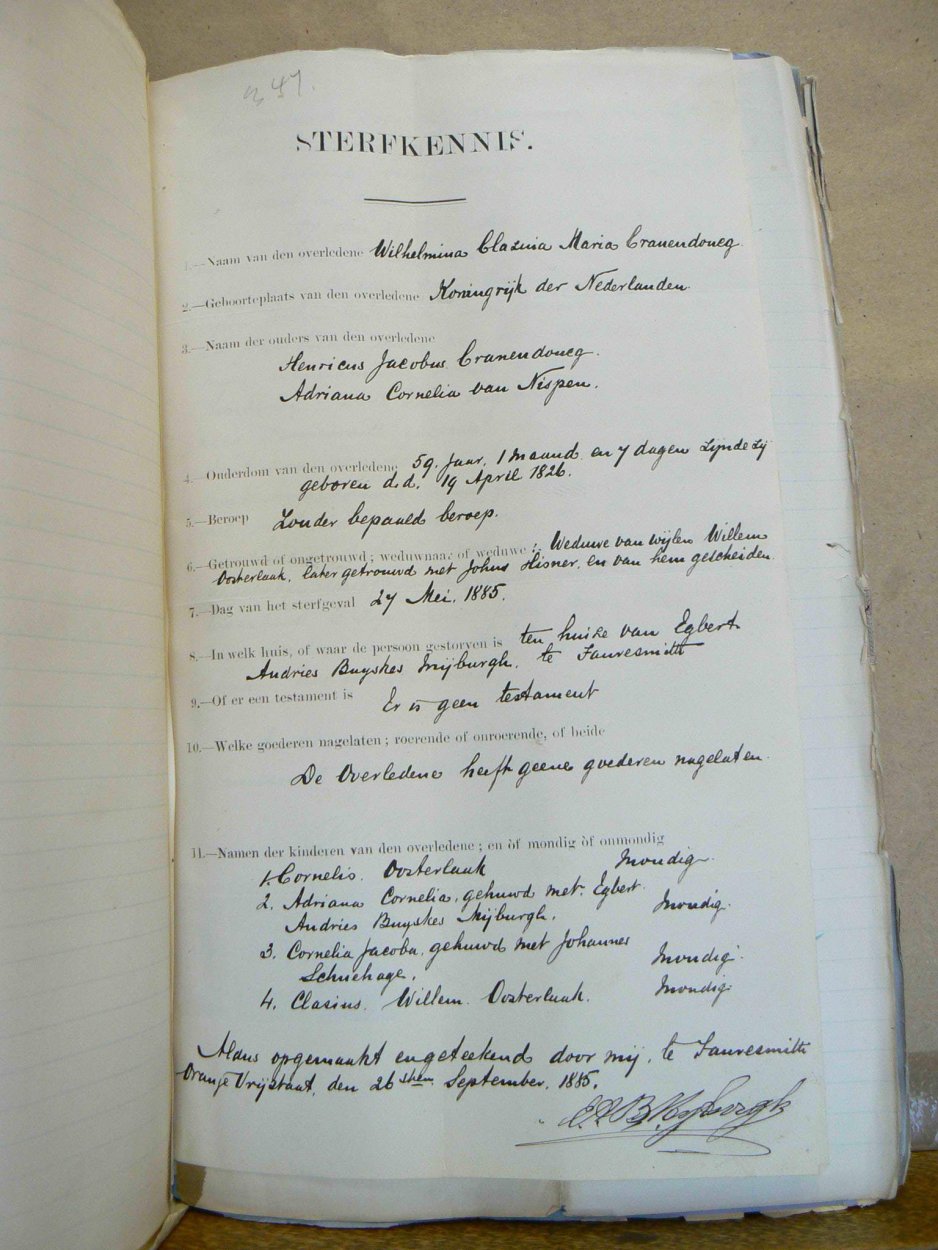 347.
STERFKENNIS.
1.—Naam van den overledene Wilhelmina Clasina Maria Cranendoncq
2.—Geboorteplaats van den overledene Koningrijk der Nederlanden
3.—Naam der ouders van den overledene
Henricus Jacobus Cranendoncq.
Adriana Cornelia van Nispen.
4.—Ouderdom van den overledene 59 Jaar, 1 Maand en 7 dagen zijnde zij
geboren d.d. 19 April 1826.
5.—Beroep Zonder bepaald beroep.
6.—Getrouwd of ongetrouwd; weduwnaar of weduwe: Weduwe van wijlen Willem
Oosterlaak, later getrouwd met Johns Hisner, en van hem gescheiden
7.—Dag van het sterfgeval 27 Mei, 1885.
8.—In welk huis, of waar de persoon gestorven is ten huize van Egbert
Andries Buyskes Mijburgh, te Fauresmith
9.—Of er een testament is Er is geen testament
10.—Welke goederen nagelaten; roerende of onroerende, of beide
De Overledene heeft geene goederen nagelaten.
11.—Namen der kinderen van den overledene; en òf mondig òf onmondig
1. Cornelis Oosterlaak Mondig.
2. Adriana Cornelia, gehuwd met Egbert
Andries Buyskes Mijburgh. Mondig.
3. Cornelia Jacoba, gehuwd met Johannes
Schuehage. Mondig.
4. Clasius Willem Oosterlaak. Mondig.
Aldus opgemaakt en geteekend door mij, te Fauresmith
Oranje Vrijstaat, den 26sten September, 1885.
E.A.B. Mijburgh